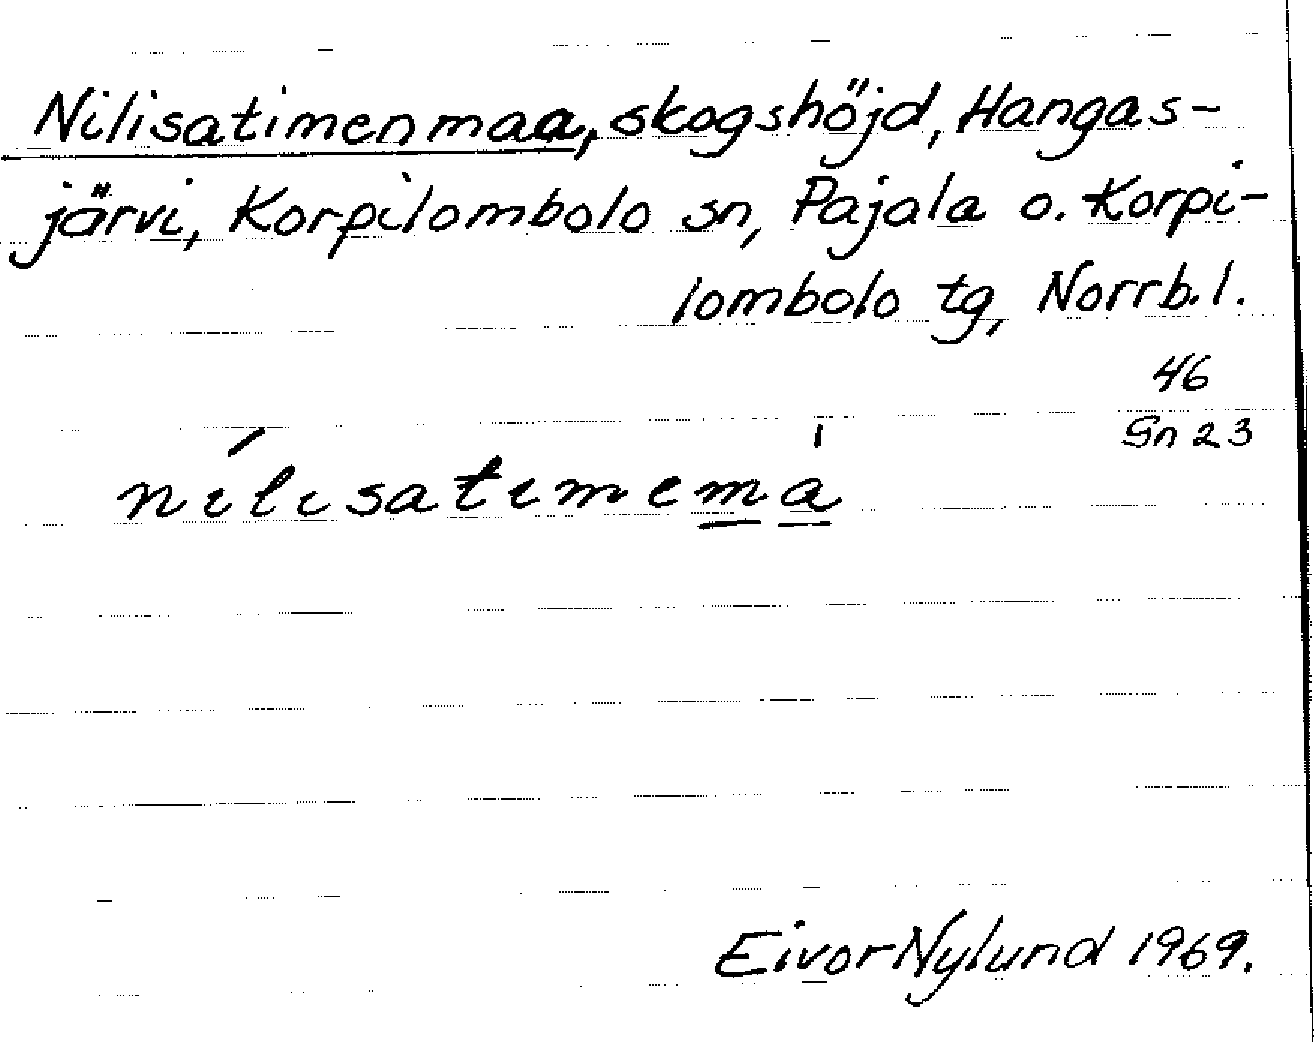 Nilisatimenmaa, skogshöjd, Hangas-
järvi, Korpilombolo sn, Pajala o. Korpi-
lombolo tg, Norrb.l.
46
Sn 23
nılısatımemà
Eivor Nylund 1969.